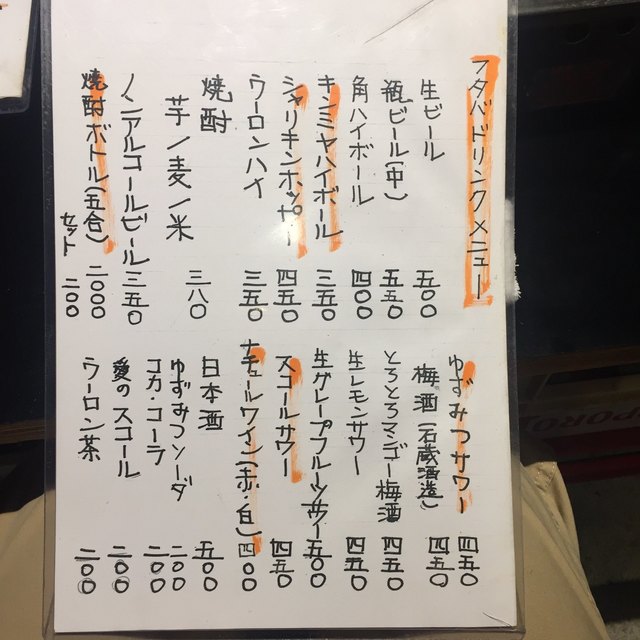 フタバドリンクメニュー
生ビール 五〇〇
瓶ビール(中) 五五〇
角ハイボール 四〇〇
キンミヤハイボール 三五〇
シャリキンホッピー 四五〇
ウーロンハイ 三五〇
焼酎
芋/麦/米 三八〇
ノンアルコールビール 三五〇
焼酎ボトル(五合) 二〇〇〇
セット 二〇〇
ゆずみつサワー 四五〇
梅酒(石蔵酒造) 四五〇
とろとろマンゴー梅酒 四五〇
生レモンサワー 四五〇
生グレープフルーツサワー 五〇〇
スコールサワー 四五〇
ナチュールワイン(赤・白) 四〇〇
日本酒 五〇〇
ゆずみつソーダ 二〇〇
コカ・コーラ 二〇〇
愛のスコール 二〇〇
ウーロン茶 二〇〇